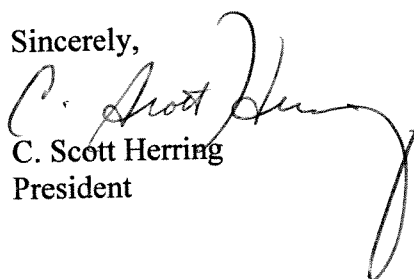 Sincerely,
C. Scott Herring
C. Scott Herring
President